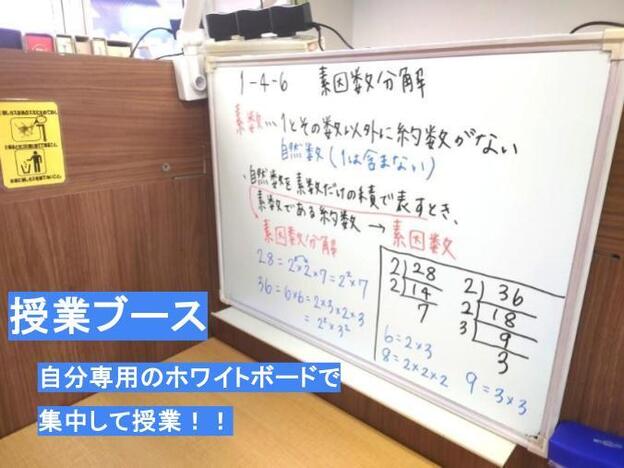 1-4-6 素因数分解
素数…1とその数以外に約数がない
自然数(1は含まない)
・自然数を素数だけの積で表すとき、
素数である約数 → 素因数
素因数分解
28=2×2×7=2²×7
36=6×6=2×3×2×3
=2²×3²
2)28
2)14
7
2)36
2)18
3)9
3
6=2×3
8=2×2×2
9=3×3
授業ブース
自分専用のホワイトボードで
集中して授業！！